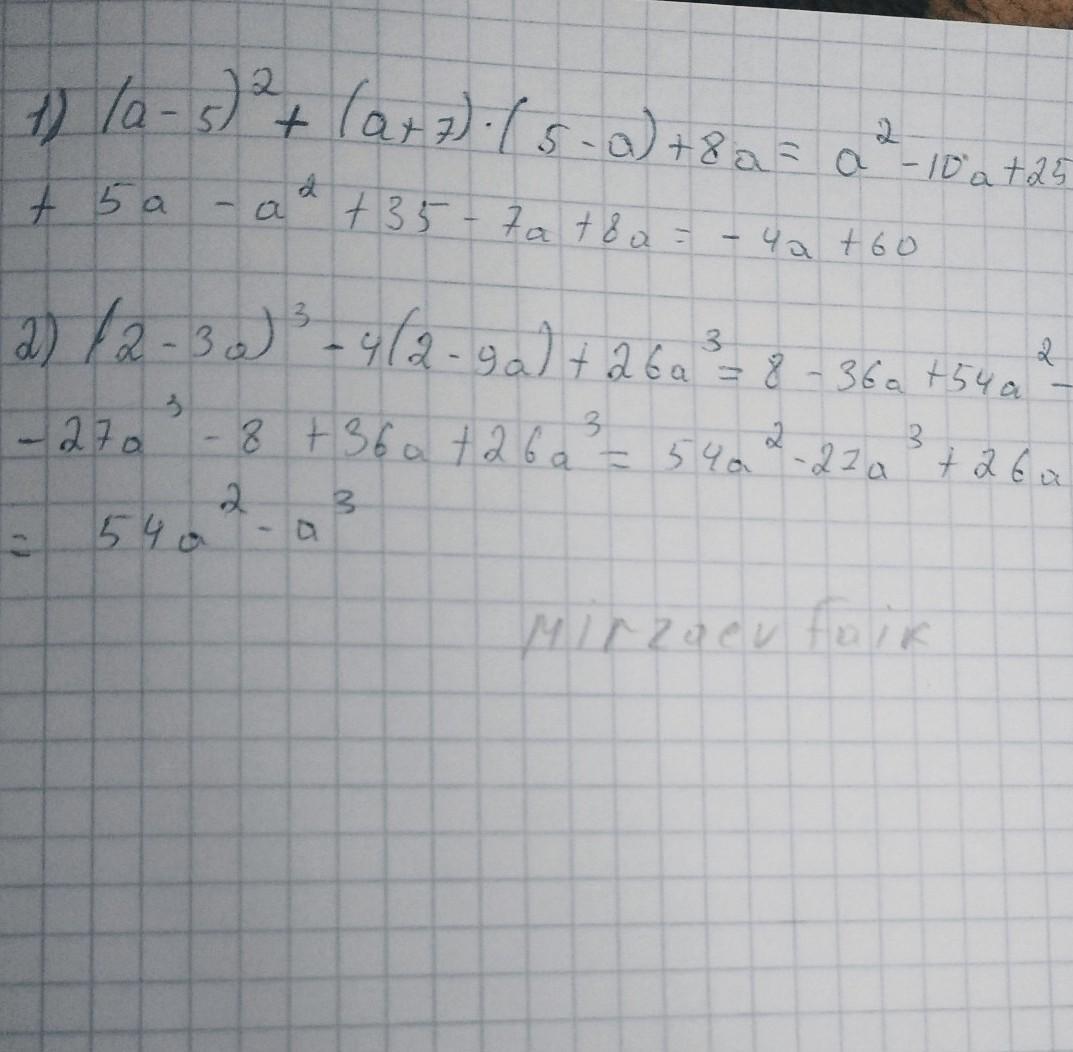 1) (a-5)² + (a+7)·(5-a)+8a = a²-10a+25
+ 5a - a² +35 - 7a +8a = - 4a +60
2) (2-3a)³ -4(2-9a)+26a³ = 8 -36a +54a² -
-27a³ - 8 +36a +26a³ = 54a² -27a³ +26a
= 54a² - a³
Mirzaev faik